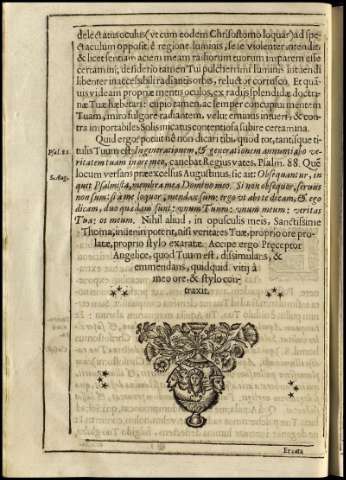 delectatus oculus (vt cum eodem Chrisostomo loquar) ad spe-
ctaculum opposit. è regione luminis, se se violenter intendit:
& licet sentiam aciem meam radiorum tuorum imparem esse
certamini, desiderio tamen Tui pulcherrimi luminis intuendi
libenter inaccessibili radiantis orbis, reluctor corusco. Et quã-
uis videam propriæ mentis oculos, ex radijs splendidæ doctri-
næ Tuæ hæbetari: cupio tamen, ac semper concupiui mentem
Tuam, miro fulgore radiantem, velut eminùs intueri, & con-
tra importabiles Solis micatus contentiosa subire certamina.
Quid ergo potui si è nõn dicari tibi, quod tot, tantisque ti-
Psal. 88.
tulis Tuum est; In generationem, & generationem annuntiabo ve-
ritatem tuam in ore meo, canebat Regius vates, Psalm. 88. Quẽ
S. Aug.
locum versans præexcelsus Augustinus, sic ait: Obsequantur, in
quit Psalmista, membra mea Domino meo. Si non obsequor, seruus
non sum: si à me loquor, mendax sum: ergo vt abs te dicam, & ego
dicam, duo quædam sunt: vnum Tuum: vnum meum: veritas
Tua: os meum. Nihil aliud, in opusculis meis, Sanctissime
Thoma, inueniri potest, nisi veritates Tuæ, proprio ore pro-
latæ, proprio stylo exaratæ. Accipe ergo Præceptor
Angelice, quod Tuum est, dissimulans, &
emmendans, quidquid vitij à
meo ore, & stylo con-
traxit.
Errata